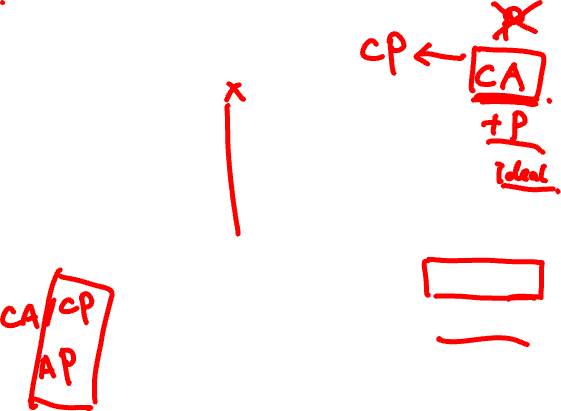 P
CP ← CA
+P
ideal
x
CA / CP
AP